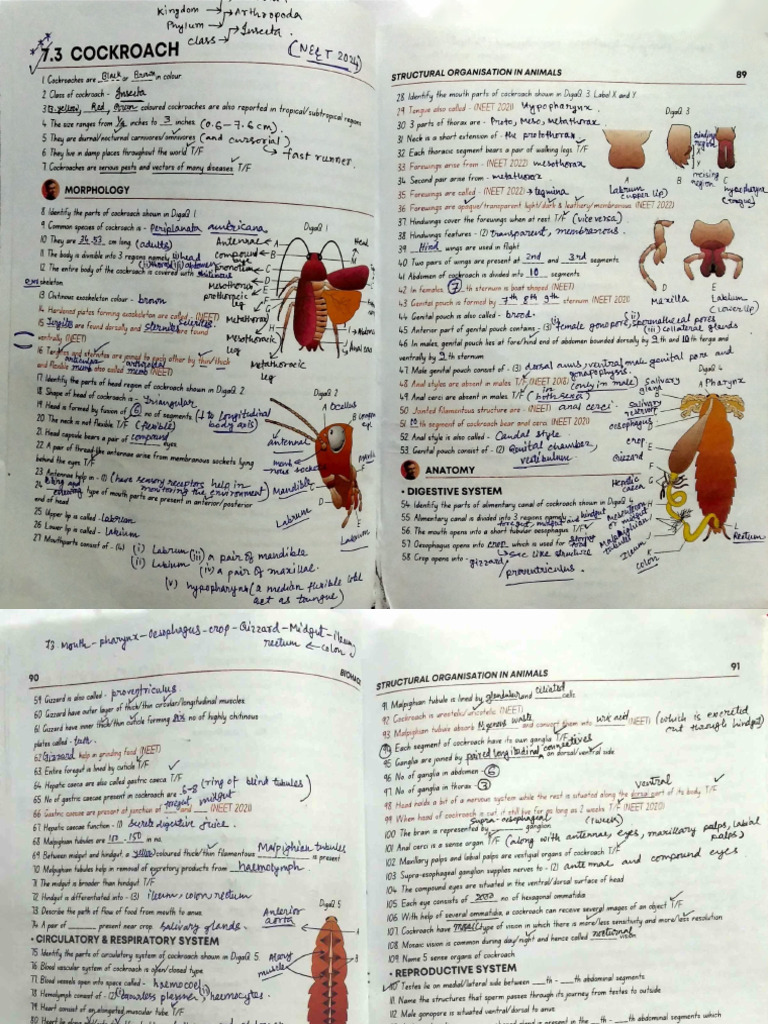 Kingdom → Arthropoda
Phylum → Insecta
class →
7.3 COCKROACH (NEET 2024)
1 Cockroaches are Black or Brown in colour.
2 Class of cockroach - Insecta
3 yellow, Red, Green coloured cockroaches are also reported in tropical/subtropical regions
4 The size ranges from ¼ inches to 3 inches (0.6 - 7.6 cm)
5 They are diurnal/nocturnal carnivores/omnivores (and cursorial)
6 They live in damp places throughout the world T/F → fast runner.
7 Cockroaches are serious pests and vectors of many diseases T/F
MORPHOLOGY
8 Identify the parts of cockroach shown in DigaQ 1
9 Common species of cockroach - periplanata americana
10 They are 34-53 cm long (adults)
11 The body is divided into 3 regions namely head
12 The entire body of the cockroach is covered with chitinous
exoskeleton
13 Chitinous exoskeleton colour - brown
14 Hardened plates forming exoskeleton are called - (NEET) sclerites
15 Tergites are found dorsally and sternites are found
ventrally (NEET)
16 Tergites and sternites are joined to each other by thin/thick
and flexible articular memb also called arthrodial memb (NEET)
17 Identify the parts of head region of cockroach shown in DigaQ 2
18 Shape of head of cockroach is - Triangular
19 Head is formed by fusion of 6 no of segments (⊥ to longitudinal body axis)
20 The neck is not flexible T/F (flexible)
21 Head capsule bears a pair of compound eyes
22 A pair of thread like antennae arise from membranous sockets lying
behind the eyes T/F
23 Antennae help in - (1) (have sensory receptors help in monitoring the environment)
24 biting and chewing type of mouth parts are present in anterior/posterior
end of head
25 Upper lip is called - Labrum
26 Lower lip is called - Labium
27 Mouthparts consist of - (4) (i) Labrum (iii) a pair of mandible
(ii) Labium (iv) a pair of maxillae.
(v) hypopharynx (a median flexible lobe
act as toungue)
DigaQ 1
Antennae
compound eye
pronotum
Mesothorax
prothoracic leg
Metathorax
Metathoracic leg
DigaQ 2
A Ocellus
antennae
Mandible
Labrum
Labium
STRUCTURAL ORGANISATION IN ANIMALS 89
28 Identify the mouth parts of cockroach shown in DigaQ 3. Label X and Y
29 Tongue also called - (NEET 2021) Hypopharynx.
30 3 parts of thorax are - Proto, Meso, metathorax
31 Neck is a short extension of - the prothorax
32 Each thoracic segment bears a pair of walking legs T/F
33 Forewings arise from - (NEET 2022) mesothorax
34 Second pair arise from - metathorax
35 Forewings are called - (NEET 2022) → tegmina
36 Forewings are opaque/transparent light/dark & leathery/membranous (NEET 2022)
37 Hindwings cover the forewings when at rest T/F (viceversa)
38 Hindwings features - (2) transparent, membranous.
39 Hind wings are used in flight
40 Two pairs of wings are present at 2nd and 3rd segments
41 Abdomen of cockroach is divided into 10 segments
42 In females 7 th sternum is boat shaped (NEET)
43 Genital pouch is formed by 7th 8th 9th sternum (NEET 2021)
44 Genital pouch is also called - brood.
45 Anterior part of genital pouch contains - (3) (i) female gonopore, (ii) spermathecal pores (iii) collateral glands
46 In males, genital pouch lies at fore/hind end of abdomen bounded dorsally by 9 th and 10 th terga and
ventrally by 9 th sternum
47 Male genital pouch consist of - (3) dorsal anus, ventral male genital pore and gonapophysis.
48 Anal styles are absent in males T/F (NEET 2018) (only in male)
49 Anal cerci are absent in males T/F (in both sexes)
50 Jointed filamentous structure are - (NEET) anal cerci.
51 10 th segment of cockroach bear anal cerci (NEET 2021)
52 Anal style is also called - Caudal style
53 Genital pouch consist of - (2) Genital chamber, vestibulum
ANATOMY
• DIGESTIVE SYSTEM
54 Identify the parts of alimentary canal of cockroach shown in DigaQ 4
55 Alimentary canal is divided into 3 regions namely foregut, midgut and hindgut
56 The mouth opens into a short tubular oesophagus T/F
57 Oesophagus opens into crop which is used for storing food
↳ sac like structure
58 Crop opens into - gizzard / proventriculus.
DigaQ 3
grinding region
incising region
A
Labrum (upper lip)
B
C
hypopharynx (tongue)
D
Maxilla
E
Labium (lower lip)
DigaQ 4
Salivary gland
A Pharynx
Salivary reservoir
oesophagus
crop
Gizzard
Hepatic caeca
Mesenteron or midgut
Malpighian tubules
Ileum
K
colon
L
Rectum
73. Mouth - pharynx - Oesophagus - crop - Gizzard - Midgut - ileum
rectum ← colon
90 BIOHACK
59 Gizzard is also called - proventriculus.
60 Gizzard have outer layer of thick/thin circular/longitudinal muscles
61 Gizzard have inner thick/thin cuticle forming six no of highly chitinous
plates called - teeth.
62 Gizzard help in grinding food (NEET)
63 Entire foregut is lined by cuticle T/F
64 Hepatic caeca are also called gastric caeca T/F
65 No of gastric caecae present in cockroach are - 6-8 (ring of blint tubules)
66 Gastric caecae are present at junction of foregut and midgut (NEET 2021)
67 Hepatic caecae function - (1) secrete digestive juice.
68 Malpighian tubules are 100 - 150 in no.
69 Between midgut and hindgut, a yellow coloured thick/thin filamentous Malpighian tubules is present
70 Malpighian tubules help in removal of excretory products from haemolymph.
71 The midgut is broader than hindgut T/F
72 Hindgut is differentiated into - (3) ileum, colon rectum
73 Describe the path of flow of food from mouth to anus.
74 A pair of ______ present near crop. salivary glands.
• CIRCULATORY & RESPIRATORY SYSTEM
75 Identify the parts of circulatory system of cockroach shown in DigaQ 5.
76 Blood vascular system of cockroach is open/closed type
77 Blood vessels open into space called - haemocoel
78 Hemolymph consist of - (2) (i) colourless plasma, (ii) haemocytes.
79 Heart consist of an elongated muscular tube T/F
DigaQ 5
Anterior aorta
Alary muscles
A
B
STRUCTURAL ORGANISATION IN ANIMALS 91
91 Malpighian tubule is lined by glandular and ciliated cells
92 Cockroach is ureotelic/uricotelic (NEET)
93 Malpighian tubule absorb Nitrogenous waste and convert them into uric acid (NEET) (which is excreted out through hindgut)
94 Each segment of cockroach have its own ganglia T/F
95 Ganglia are joined by paired longitudinal connectives on dorsal/ventral side
96 No of ganglia in abdomen - 6
97 No of ganglia in thorax - 3
98 Head holds a bit of a nervous system while the rest is situated along the dorsal part of its body T/F ventral
99 When head of cockroach is cut, it still live for as long as 2 weeks T/F (NEET 2020) (1 week)
100 The brain is represented by supra-oesophageal ganglion
101 Anal cerci is a sense organ T/F (along with antennae, eyes, maxillary palps, labial palps)
102 Maxillary palps and labial palps are vestigual organs of cockroach T/F
103 Supra-esophageal ganglion supplies nerves to - (2) antennal and compound eyes
104 The compound eyes are situated in the ventral/dorsal surface of head
105 Each eye consists of 2000 no of hexagonal ommatidia
106 With help of several ommatidia, a cockroach can receive several images of an object T/F
107 Cockroach have mosaic type of vision in which there is more/less sensitivity and more/less resolution
108 Mosaic vision is common during day/night and hence called nocturnal vision
109 Name 5 sense organs of cockroach
• REPRODUCTIVE SYSTEM
110 Testes lie on medial/lateral side between ___th - ___th abdominal segments
111 Name the structures that sperm passes through its journey from testes to outside
112 Male gonopore is situated ventral/dorsal to anus